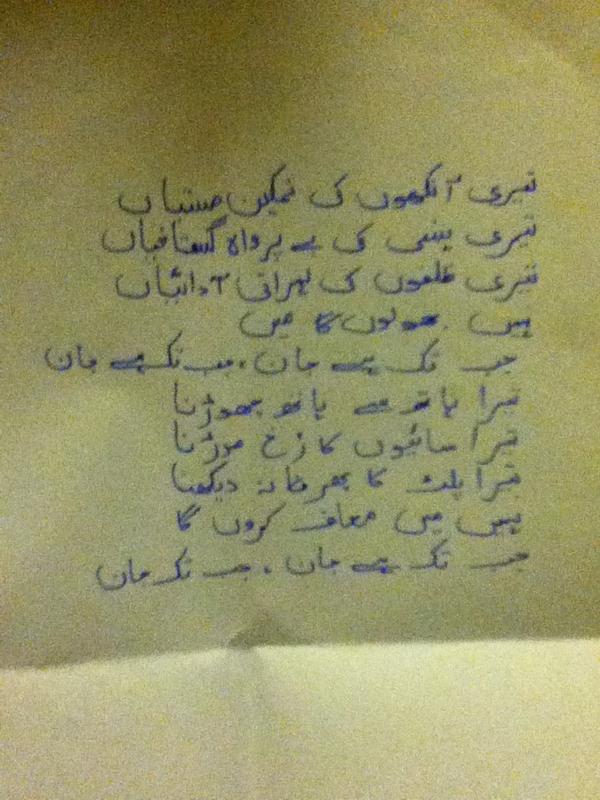 تیری آنکھوں کی نمکین مستیاں
تیری ہنسی کی بے پرواہ گستاخیاں
تیری زلفوں کی لہراتی انگڑائیاں
نہیں بھولوں گا میں
جب تک ہے جان، جب تک ہے جان
تیرا ہاتھ سے ہاتھ چھوڑنا
تیرا سائیوں کا رخ موڑنا
تیرا پلٹ کا پھر نہ دیکھنا
نہیں میں معاف کروں گا
جب تک ہے جان، جب تک جان